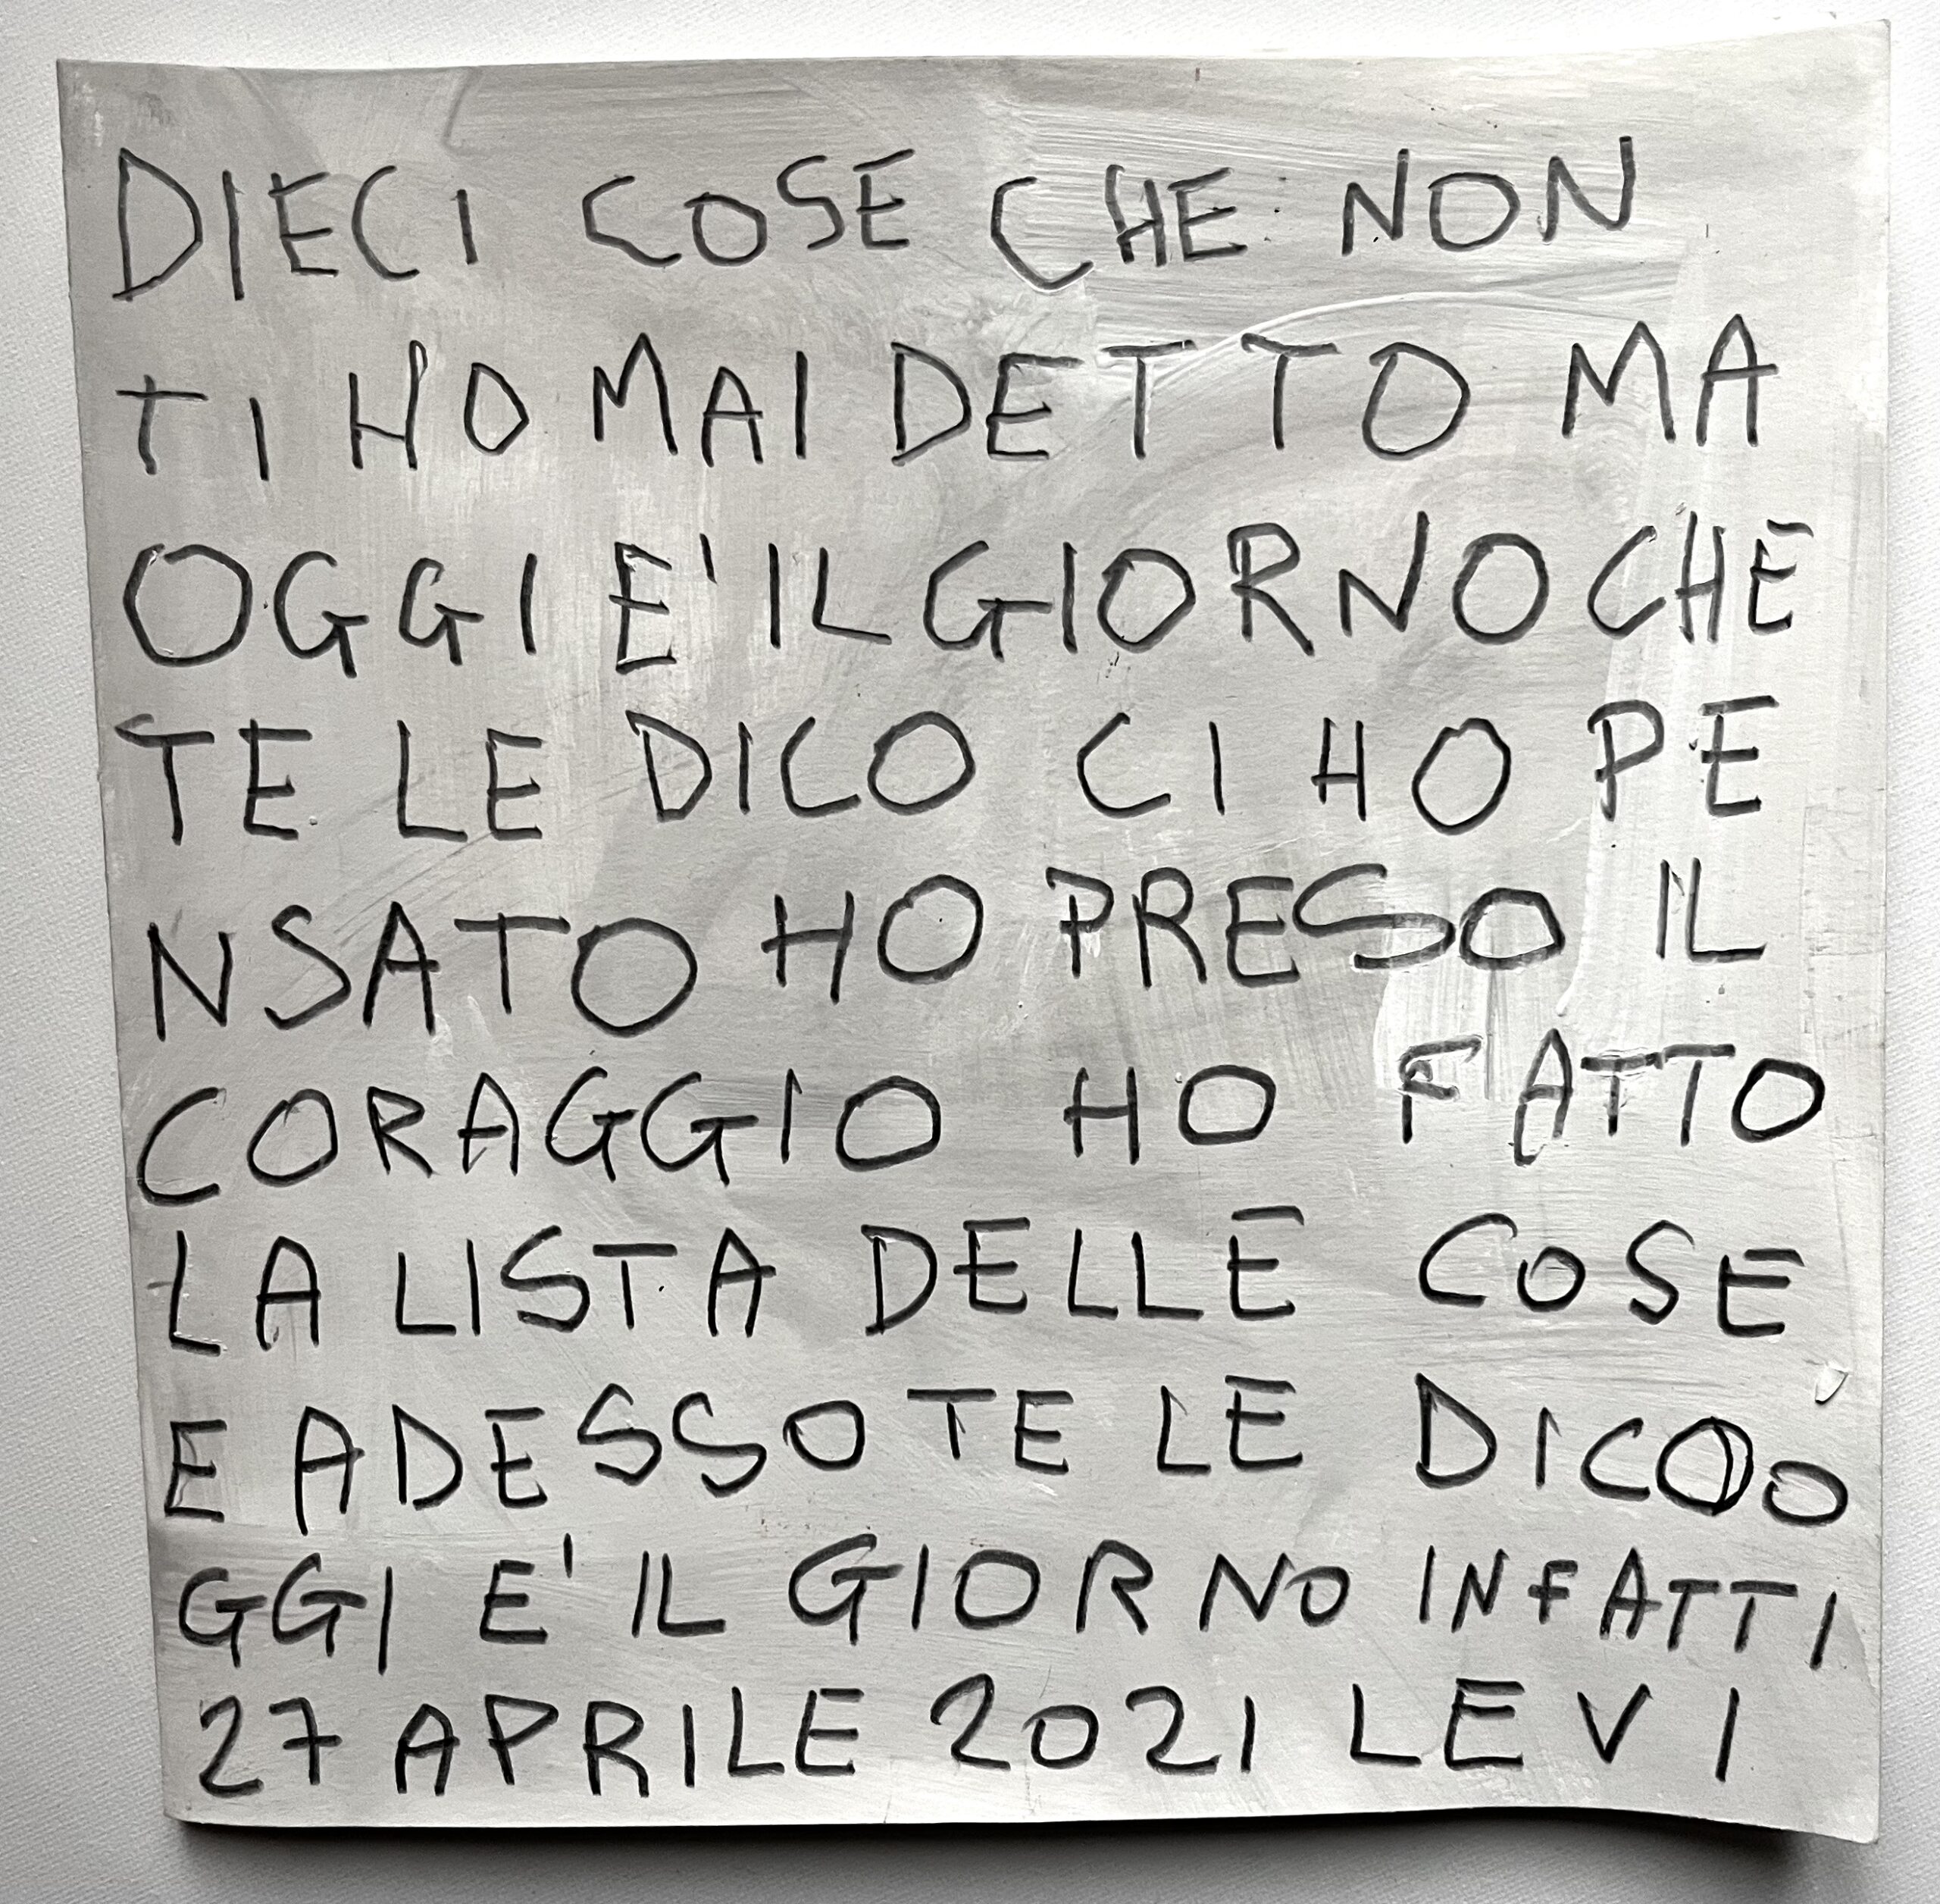 DIECI COSE CHE NON
TI HO MAI DETTO MA
OGGI E' IL GIORNO CHE
TE LE DICO CI HO PE
NSATO HO PRESO IL
CORAGGIO HO FATTO
LA LISTA DELLE COSE
E ADESSO TE LE DICO O
GGI E' IL GIORNO INFATTI
27 APRILE 2021 LEVI